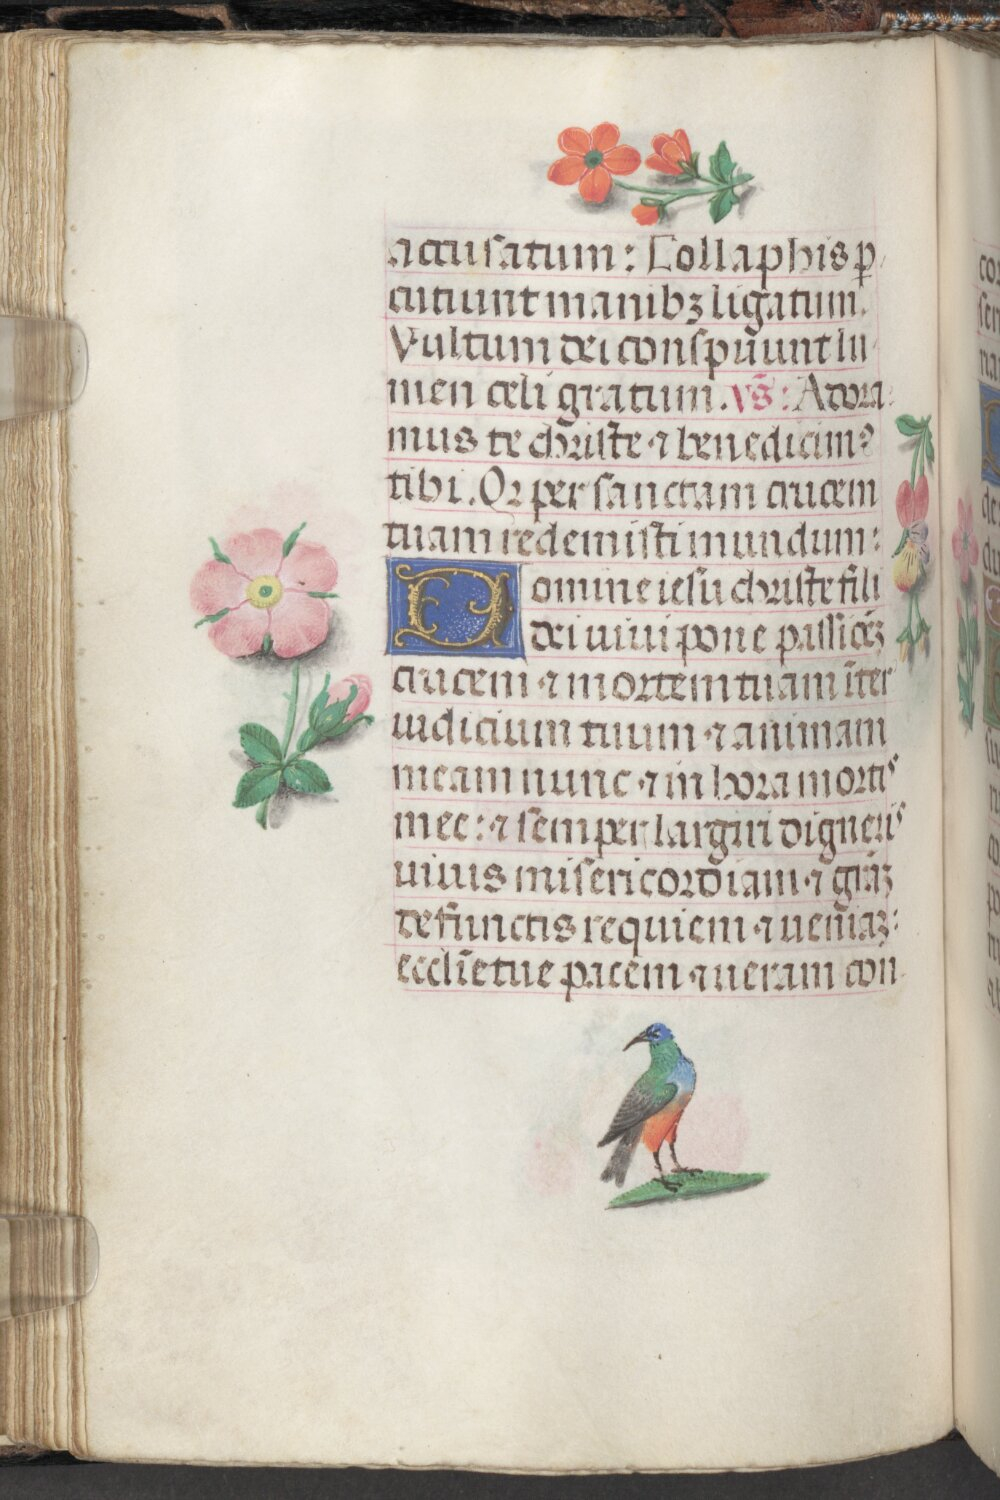 accusatum: Collaphis p̱
cutiunt manibꝫ ligatum.
Vultum dei conspũunt lu
men celi gratum. Vs̃: Adora
mus te christe ⁊ benedicimꝰ
tibi. Qꝛ per sanctam crucem
tuam redemisti mundum:
Domine iesu christe fili
dei uiui pone passiõꝫ
crucem ⁊ mortem tuam ĩter
iudicium tuum ⁊ animam
meam nunc ⁊ in hora mortis
mee: ⁊ semper largiri digneris
uiuis misericordiam ⁊ grãꝫ
defunctis requiem ⁊ ueniaꝫ:
ecclie tue pacem ⁊ ueram con